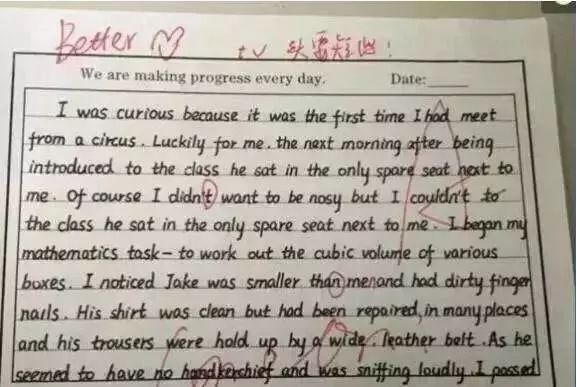 Better
t v 头要短些!
We are making progress every day. Date:
I was curious because it was the first time I had meet
from a circus. Luckily for me. the next morning after being
introduced to the class he sat in the only spare seat next to
me. Of course I didn't want to be nosy but I couldn't to
the class he sat in the only spare seat next to me. I began my
mathematics task – to work out the cubic volume of various
boxes. I noticed Jake was smaller than menand had dirty finger
nails. His shirt was clean but had been repaired, in many places
and his trousers were hold up by a wide. leather belt. As he
seemed to have no handkerchief and was sniffing loudly. I passed